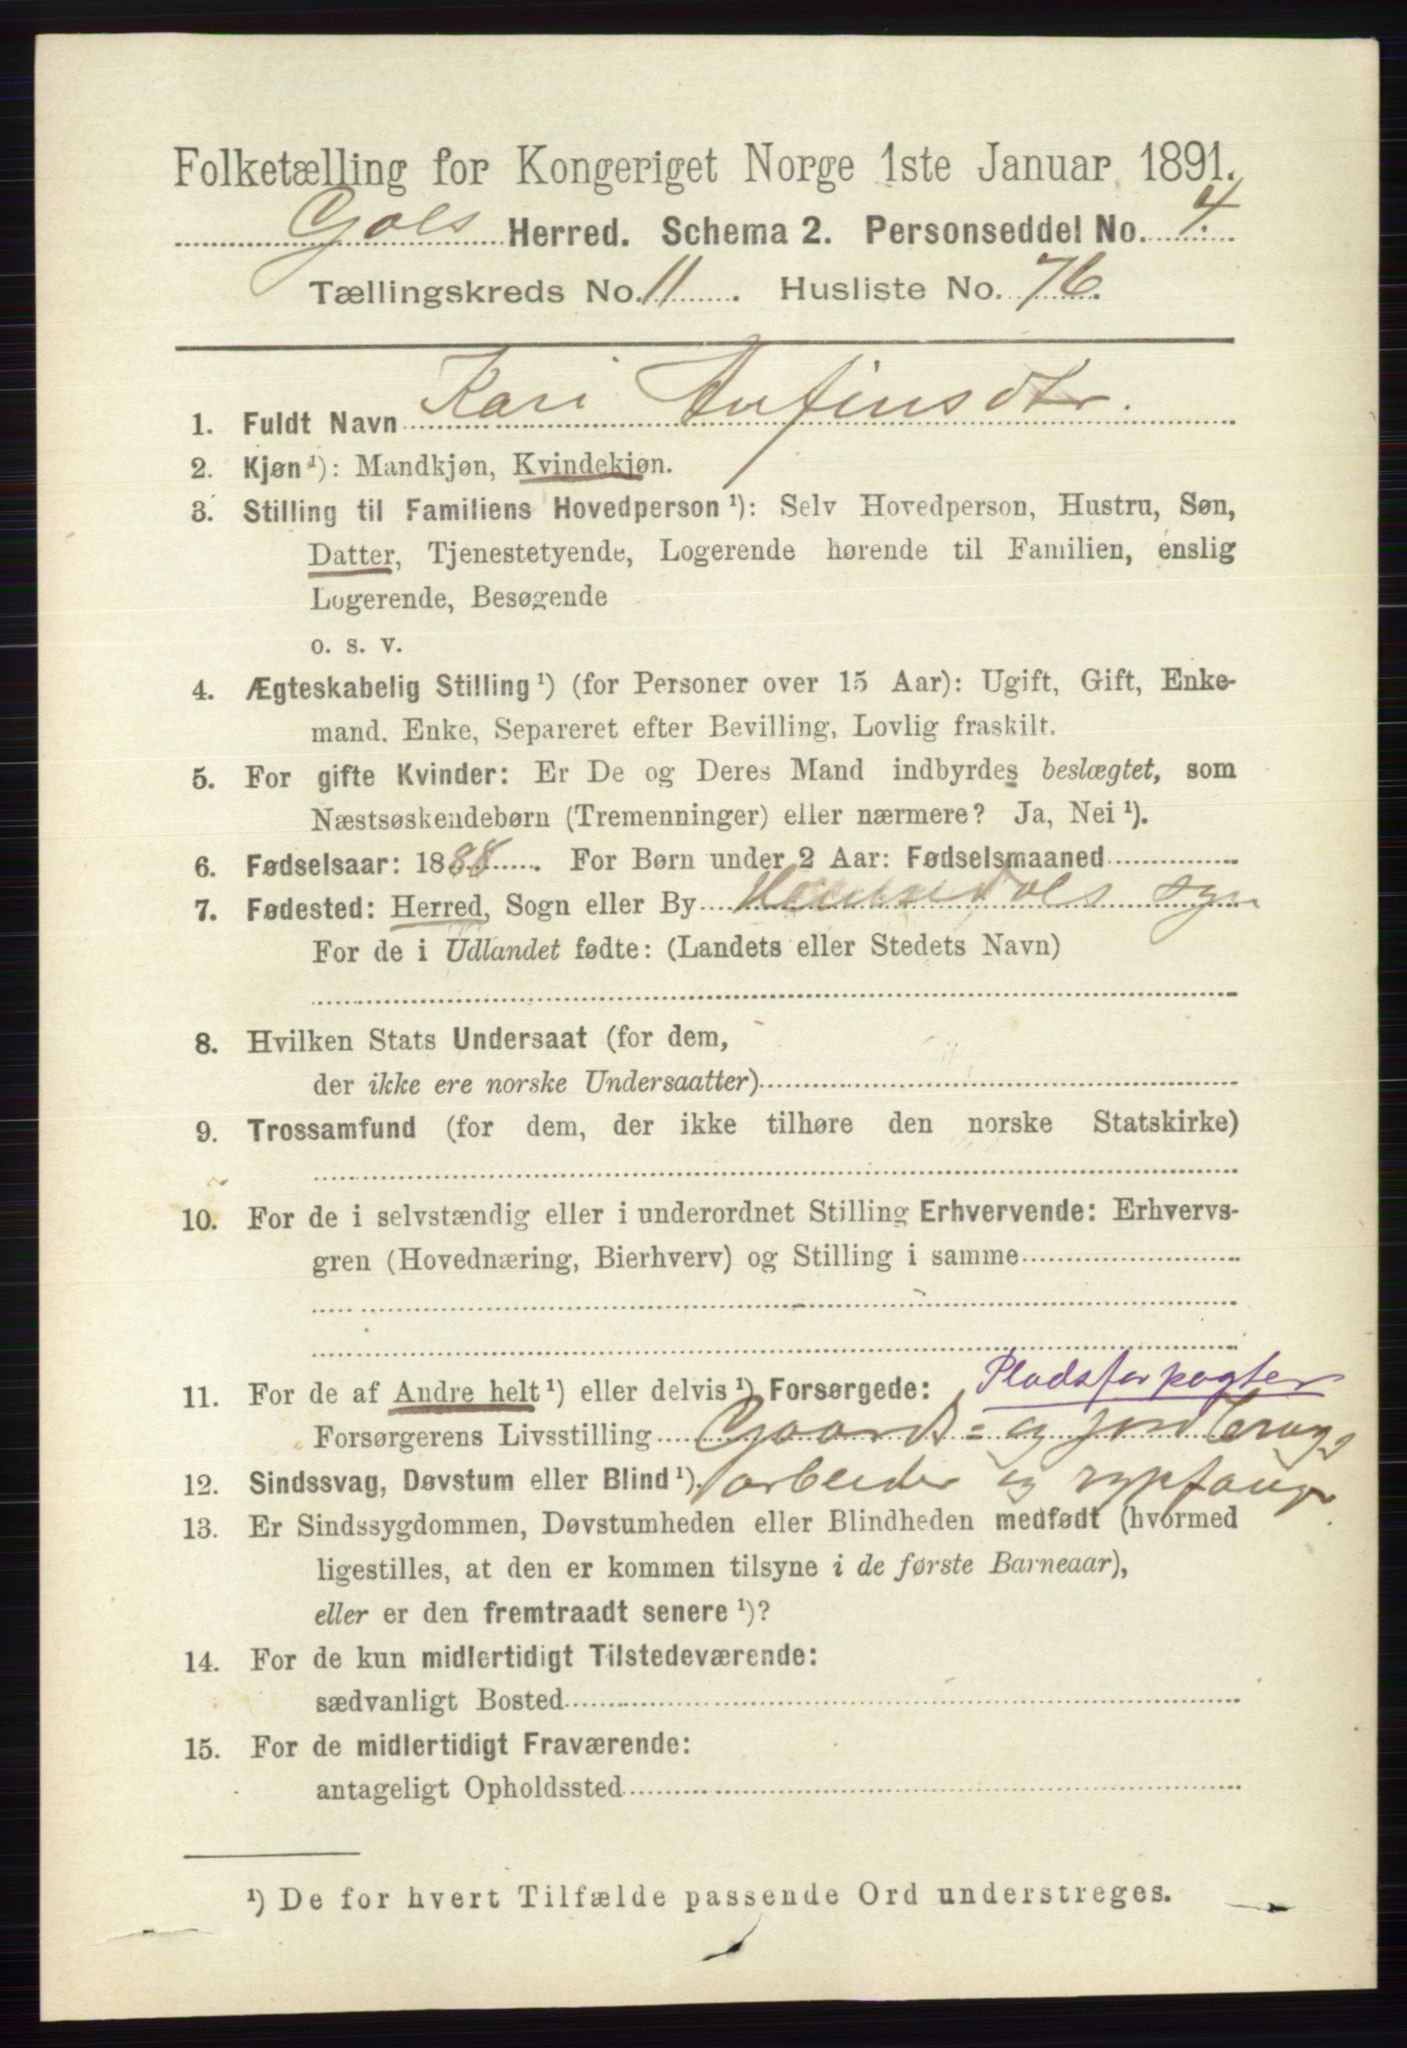 Folketælling for Kongeriget Norge 1ste Januar 1891.
Gols Herred. Schema 2. Personseddel No. 4.
Tællingskreds No. 11. Husliste No. 76.
1. Fuldt Navn Kari Arfinsdtr.
2. Kjøn ¹): Mandkjøn, Kvindekjøn.
3. Stilling til Familiens Hovedperson ¹): Selv Hovedperson, Hustru, Søn,
Datter, Tjenestetyende, Logerende hørende til Familien, enslig
Logerende, Besøgende
o. s. v.
4. Ægteskabelig Stilling ¹) (for Personer over 15 Aar): Ugift, Gift, Enke-
mand. Enke, Separeret efter Bevilling, Lovlig fraskilt.
5. For gifte Kvinder: Er De og Deres Mand indbyrdes beslægtet, som
Næstsøskendebørn (Tremenninger) eller nærmere? Ja, Nei ¹).
6. Fødselsaar: 1888. For Børn under 2 Aar: Fødselsmaaned
7. Fødested: Herred, Sogn eller By
For de i Udlandet fødte: (Landets eller Stedets Navn)
8. Hvilken Stats Undersaat (for dem,
der ikke ere norske Undersaatter)
9. Trossamfund (for dem, der ikke tilhøre den norske Statskirke)
10. For de i selvstændig eller i underordnet Stilling Erhvervende: Erhvervs-
gren (Hovednæring, Bierhverv) og Stilling i samme
Pladsforpagter
11. For de af Andre helt ¹) eller delvis ¹) Forsørgede:
Forsørgerens Livsstilling Gaards= og jordbrugs
12. Sindssvag, Døvstum eller Blind ¹). arbeider og rypfanger
13. Er Sindssygdommen, Døvstumheden eller Blindheden medfødt (hvormed
ligestilles, at den er kommen tilsyne i de første Barneaar),
eller er den fremtraadt senere ¹)?
14. For de kun midlertidigt Tilstedeværende:
sædvanligt Bosted
15. For de midlertidigt Fraværende:
antageligt Opholdssted
¹) De for hvert Tilfælde passende Ord understreges.